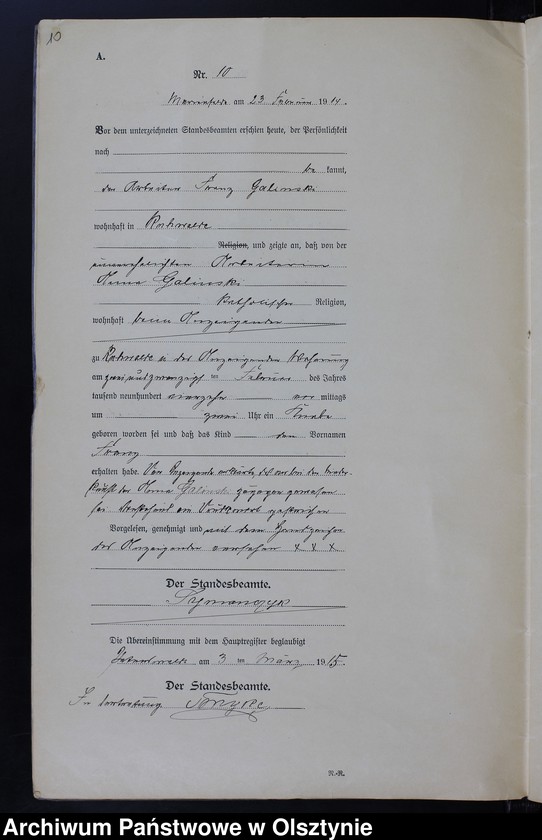 10
A.
Nr. 10
Marienfelde am 23 Februar 1914.
Vor dem unterzeichneten Standesbeamten erschien heute, der Persönlichkeit
nach
be kannt,
der Arbeiter Franz Galinski
wohnhaft in
Religion, und zeigte an, daß von der
unverehelichten Arbeiterin
Anna Galinski
katholischer Religion,
wohnhaft beim Anzeigenden
zu in des Anzeigenden Wohnung
am zwei und zwanzigsten Februar des Jahres
tausend neunhundert vierzehn vor mittags
um zwei Uhr ein Knabe
geboren worden sei und daß das Kind den Vornamen
Franz
erhalten habe. Der Anzeigende erklärte, daß er bei der Nieder-
kunft der Anna Galinski zugegen gewesen
sei. Vordruck gestrichen
Vorgelesen, genehmigt und mit dem Handzeichen
des Anzeigenden versehen x x x
Der Standesbeamte.
Szymanczyk
Die Übereinstimmung mit dem Hauptregister beglaubigt
am 3 ten März 1915.
Der Standesbeamte.
In Vertretung
N.-R.
Archiwum Państwowe w Olsztynie